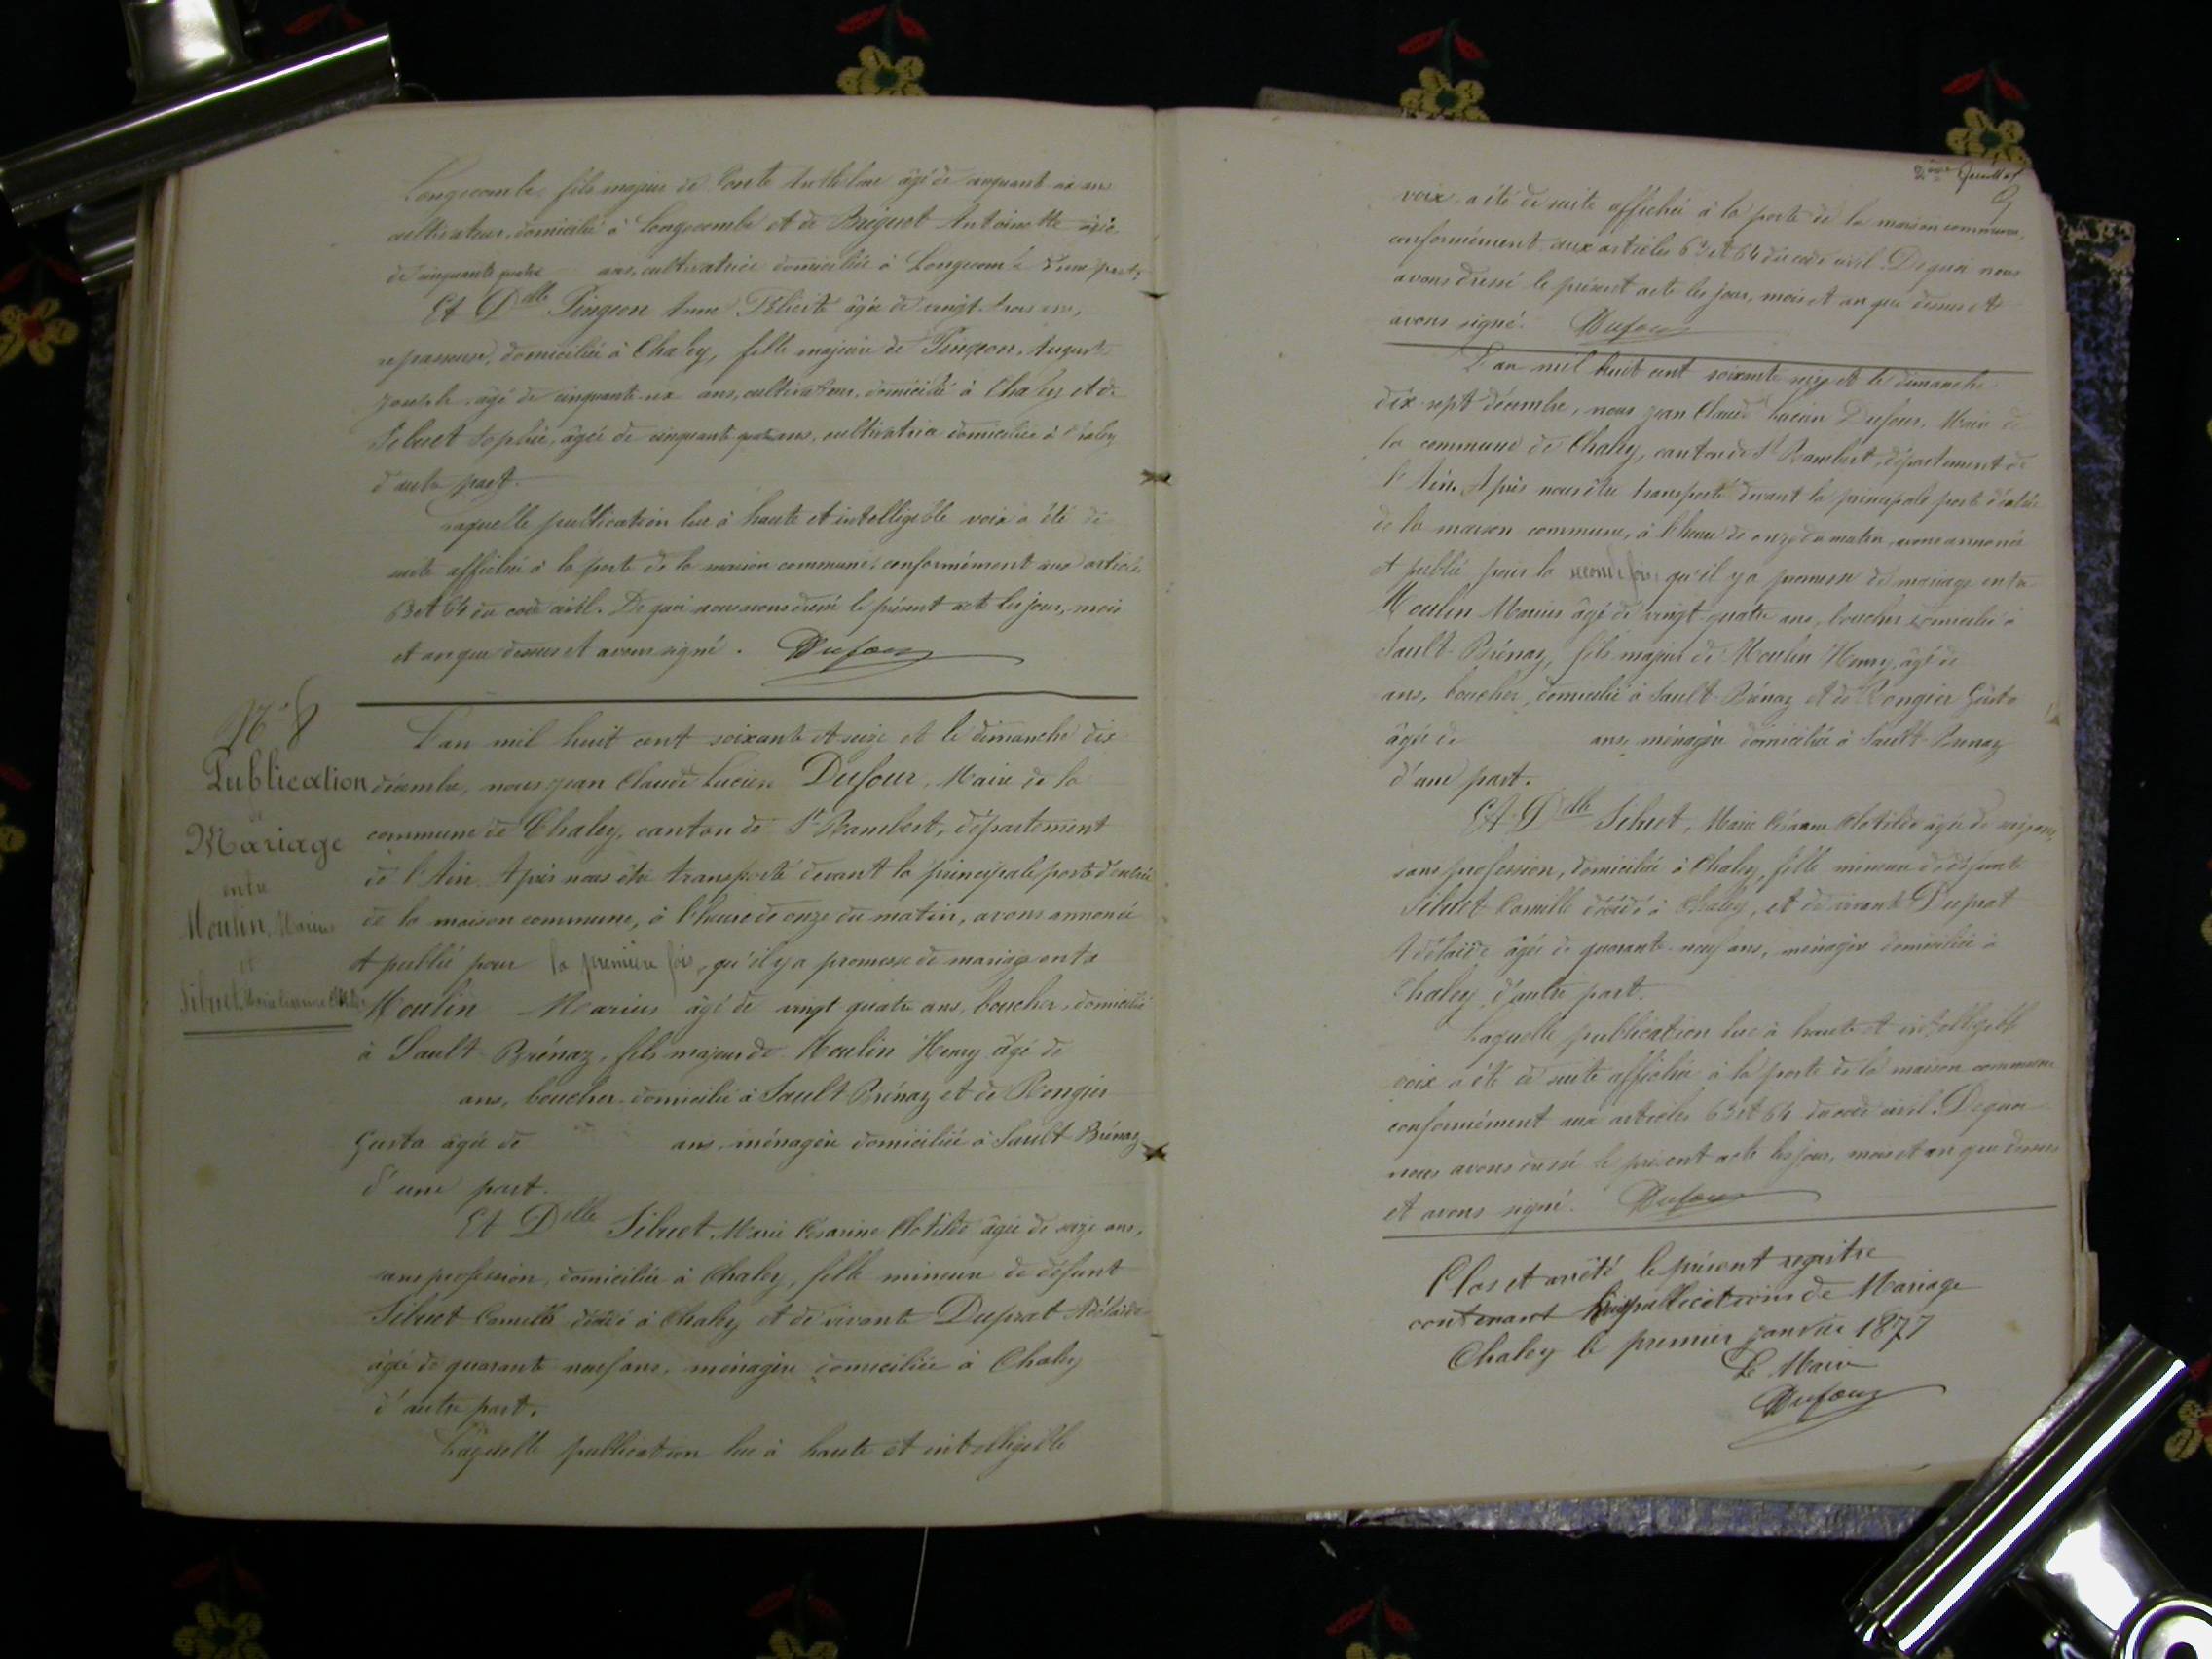 Longecombe, fils majeur de Conte Anthelme âgé de cinquant six ans
cultivateur, domicilié à Longecombe et de Briguet Antoinette âgée
de cinquante quatre ans, cultivatrice domiciliée à Longecombe d'une part;
Et Delle Pingeon Anne Félicité âgée de vingt-trois ans,
repasseuse, domiciliée à Chaley, fille majeure de Pingeon, Auguste
Joseph, âgé de cinquante-six ans, cultivateur, domicilié à Chaley et de
Sibuet Sophie, âgée de cinquante-quatre ans, cultivatrice domiciliée à Chaley
d'autre part.
Laquelle publication lue à haute et intelligible voix a été de
suite affichée à la porte de la maison commune, conformément aux articles
63 et 64 du code civil. De quoi nous avons dressé le présent acte les jour, mois
et an que dessus et avons signé. Dufour
N° 8
Publication
de
Mariage
entre
Moulin, Marius
et
Sibuet, Marie Césarine Clotilde
L'an mil huit cent soixante et seize et le dimanche dix
décembre, nous Jean Claude Lucien Dufour, Maire de la
commune de Chaley, canton de St Rambert, département
de l'Ain. Après nous être transporté devant la principale porte d'entrée
de la maison commune, à l'heure de onze du matin, avons annoncé
et publié pour la première fois, qu'il y a promesse de mariage entre
Moulin Marius âgé de vingt quatre ans, boucher, domicilié
à Sault-Brénaz, fils majeur de Moulin Henry âgé de
ans, boucher, domicilié à Sault Brénaz et de Rongier
Gusta âgée de ans, ménagère domiciliée à Sault-Brénaz
d'une part.
Et Delle Sibuet Marie Césarine Clotilde âgée de seize ans,
sans profession, domiciliée à Chaley, fille mineure de défunt
Sibuet Camille décédé à Chaley et de vivante Duprat Adélaïde
âgée de quarante neuf ans, ménagère domiciliée à Chaley
d'autre part.
Laquelle publication lue à haute et intelligible
2ème feuillet
voix a été de suite affichée à la porte de la maison commune,
conformément aux articles 63 et 64 du code civil. De quoi nous
avons dressé le présent acte les jour, mois et an que dessus et
avons signé. Dufour
L'an mil huit cent soixante seize et le dimanche
dix-sept décembre, nous Jean Claude Lucien Dufour, Maire de
la commune de Chaley, canton de St Rambert, département de
l'Ain. Après nous être transporté devant la principale porte d'entrée
de la maison commune, à l'heure de onze du matin, avons annoncé
et publié pour la seconde fois, qu'il y a promesse de mariage entre
Moulin Marius âgé de vingt-quatre ans, boucher domicilié à
Sault-Brénaz, fils majeur de Moulin Henry, âgé de
ans, boucher, domicilié à Sault-Brénaz et de Rongier Gusta
âgée de ans ménagère domiciliée à Sault-Brénaz
d'une part.
Et Delle Sibuet, Marie Césarine Clotilde âgée de seize ans,
sans profession, domiciliée à Chaley, fille mineure de défunt
Sibuet Camille décédé à Chaley, et de vivante Duprat
Adélaïde âgée de quarante-neuf ans, ménagère domiciliée à
Chaley d'autre part.
Laquelle publication lue à haute et intelligible
voix a été de suite affichée à la porte de la maison commune
conformément aux articles 63 et 64 du code civil. De quoi
nous avons dressé le présent acte les jour, mois et an que dessus
et avons signé. Dufour
Clos et arrêté le présent registre
contenant huit publications de Mariage
Chaley le premier janvier 1877
Le Maire
Dufour